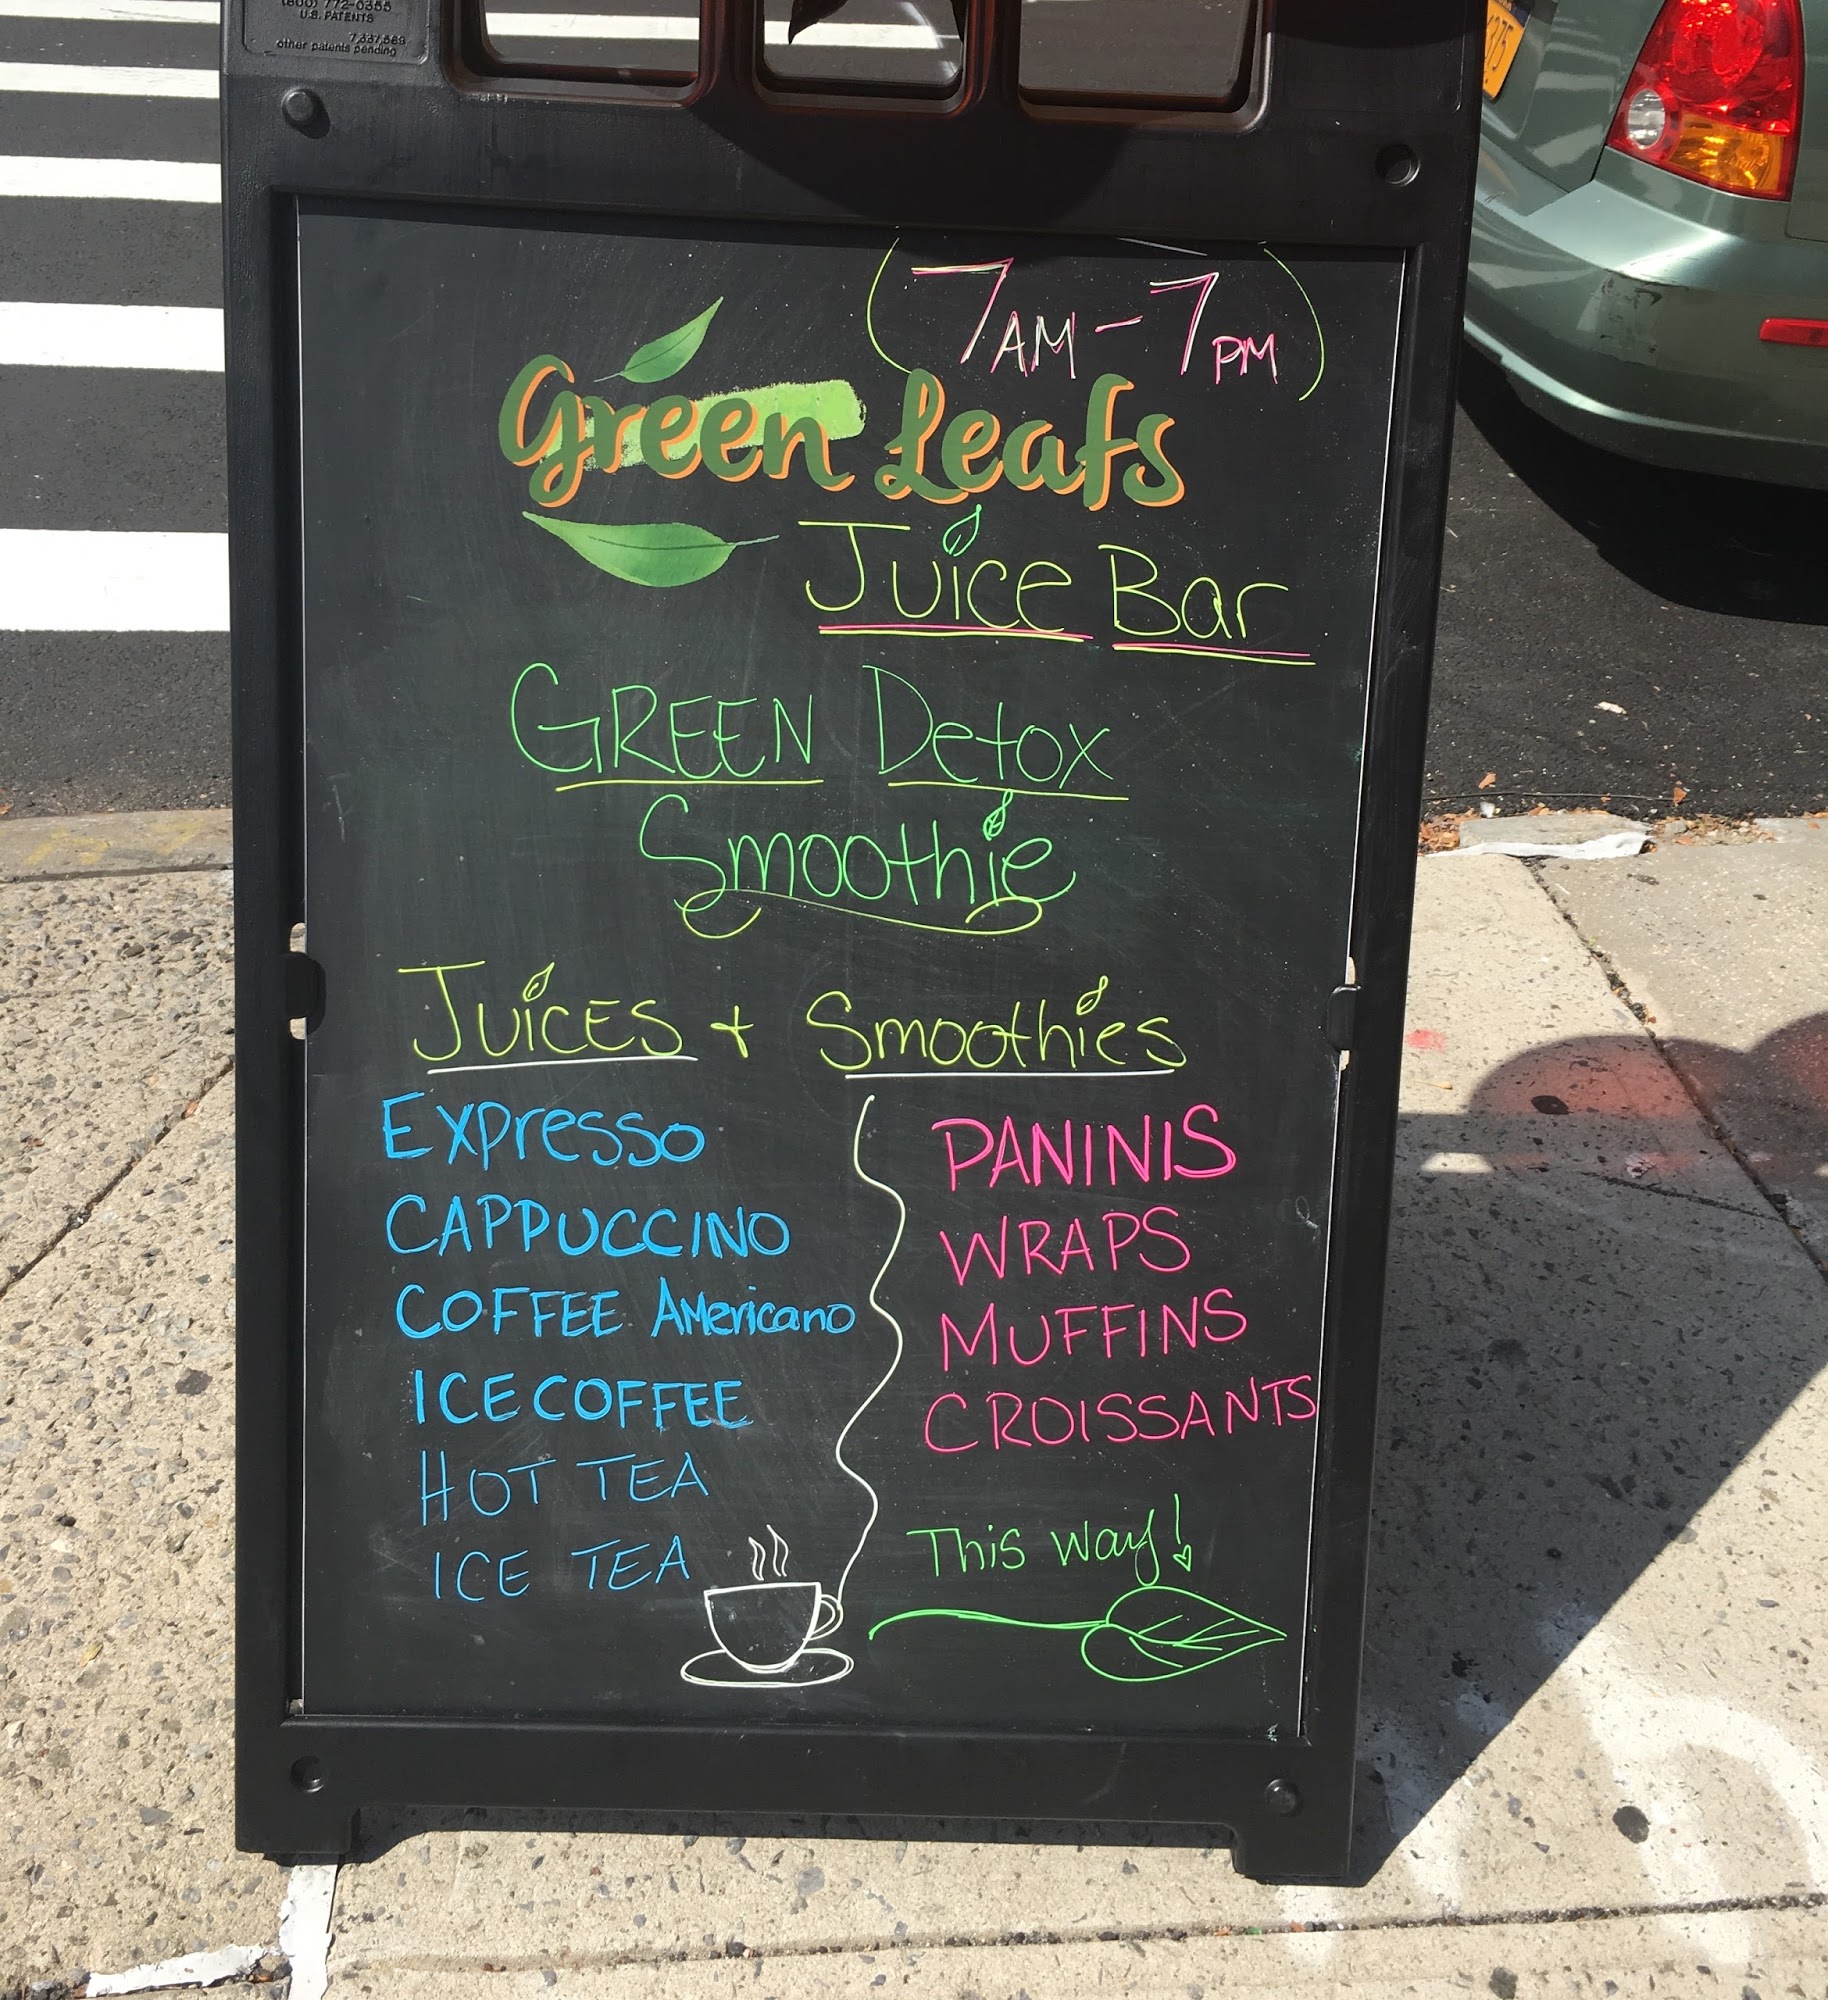 (800) 772-0355
U.S. PATENTS
7,337,569
other patents pending
(7AM-7PM)
Green Leafs
Juice Bar
GREEN Detox
Smoothie
JUiCES + Smoothies
Expresso
CAPPUCCINO
COFFEE AMericano
ICE COFFEE
HOT TEA
ICE TEA
PANINIS
WRAPS
MUFFINS
CROISSANTS
This Way!